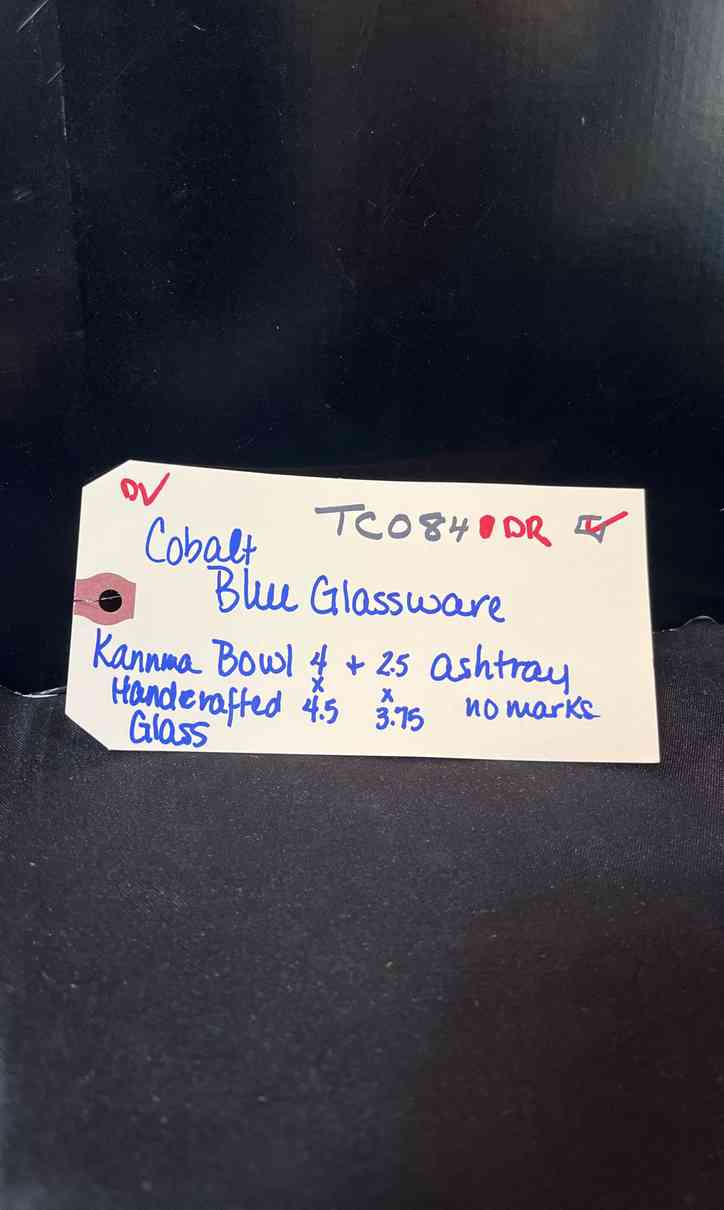 DV
TC084 DR
Cobalt
Blue Glassware
Kannma Bowl 4 + 2.5 ashtray
x x
Handcrafted 4.5 3.75 no marks
Glass